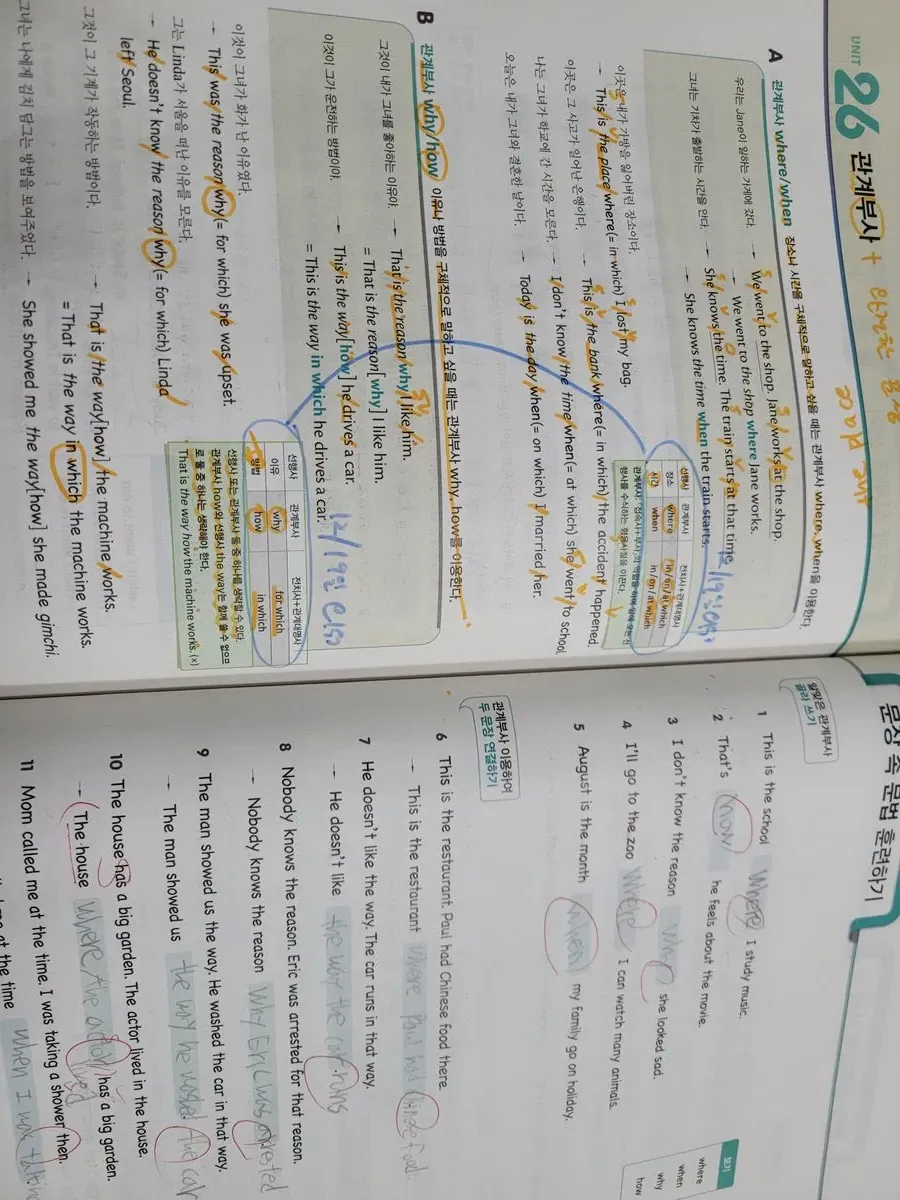 UNIT
26 관계부사 + 완전한 문장
A 관계부사 where/when 장소나 시간을 구체적으로 말하고 싶을 때는 관계부사 where, when을 이용한다.
우리는 Jane이 일하는 가게에 갔다. → We went to the shop. Jane works at the shop.
→ We went to the shop where Jane works.
그녀는 기차가 출발하는 시간을 안다. → She knows the time. The train starts at that time.
→ She knows the time when the train starts.
선행사 관계부사 전치사+관계대명사
장소 where in/on/at which
시간 when in/on/at which
이곳은 내가 가방을 잃어버린 장소이다.
→ This is the place where(= in which) I lost my bag.
이곳은 그 사고가 일어난 은행이다. → This is the bank where(= in which) the accident happened.
나는 그녀가 학교에 간 시간을 모른다. → I don't know the time when(= at which) she went to school.
오늘은 내가 그녀와 결혼한 날이다. → Today is the day when(= on which) I married her.
B 관계부사 why/how 이유나 방법을 구체적으로 말하고 싶을 때는 관계부사 why, how를 이용한다.
그것이 내가 그녀를 좋아하는 이유야. → That is the reason why I like him.
= That is the reason[why] I like him.
이것이 그가 운전하는 방법이야. → This is the way[how] he drives a car.
= This is the way in which he drives a car.
12/19일
선행사 관계부사 전치사+관계대명사
이유 why for which
방법 how in which
선행사 또는 관계부사 둘 중 하나를 생략할 수 있다.
관계부사 how와 선행사 the way는 함께 쓸 수 없으므
로 둘 중 하나는 생략해야 한다.
That is the way how the machine works. (x)
이것이 그녀가 화가 난 이유였다.
→ This was the reason why(= for which) she was upset.
그는 Linda가 서울을 떠난 이유를 모른다.
→ He doesn't know the reason why(= for which) Linda
left Seoul.
그것이 그 기계가 작동하는 방법이다. → That is the way[how] the machine works.
= That is the way in which the machine works.
그녀는 나에게 김치 담그는 방법을 보여주었다. → She showed me the way[how] she made gimchi.
문장 속 문법 훈련하기
알맞은 관계부사
골라 쓰기
보기
where
when
why
how
1 This is the school Where I study music.
2 That's how he feels about the movie.
3 I don't know the reason why she looked sad.
4 I'll go to the zoo Where I can watch many animals.
5 August is the month when my family go on holiday.
관계부사 이용하여
두 문장 연결하기
6 This is the restaurant. Paul had Chinese food there.
→ This is the restaurant where Paul had food.
7 He doesn't like the way. The car runs in that way.
→ He doesn't like the way the car runs
8 Nobody knows the reason. Eric was arrested for that reason.
→ Nobody knows the reason why Eric was arrested
9 The man showed us the way. He washed the car in that way.
→ The man showed us the way he the car
10 The house has a big garden. The actor lived in the house.
→ The house where the actor lived has a big garden.
11 Mom called me at the time. I was taking a shower then.
at the time when I was taking